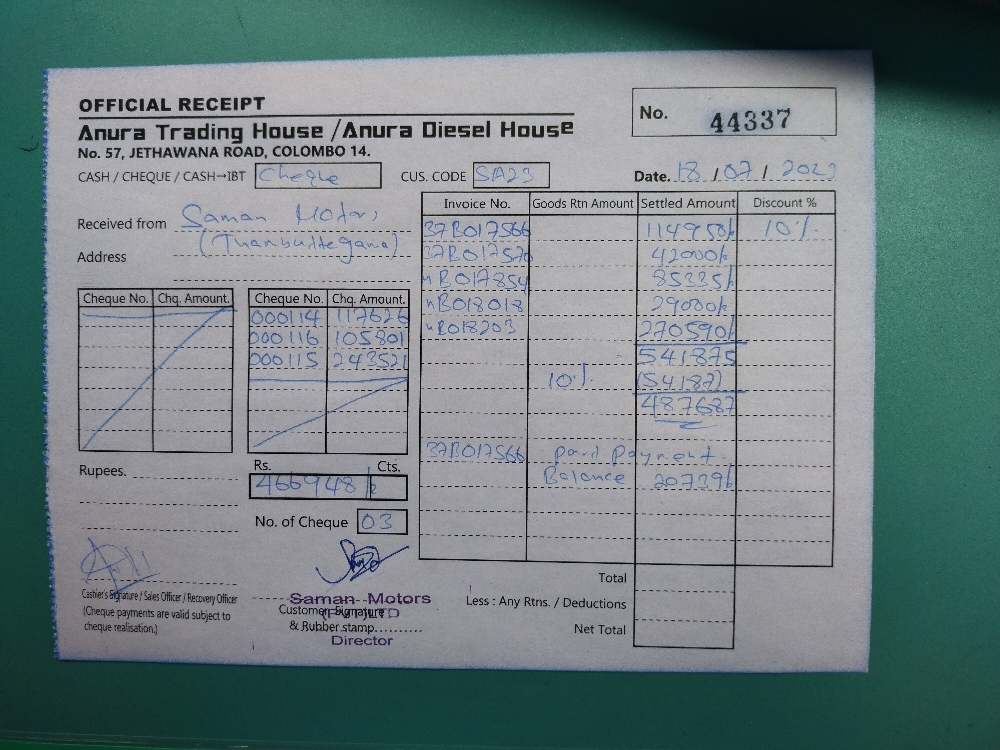 OFFICIAL RECEIPT
No. 44337
Anura Trading House /Anura Diesel House
No. 57, JETHAWANA ROAD, COLOMBO 14.
CASH / CHEQUE / CASH→IBT Cheque
CUS. CODE SA23
Date. 18 / 07 /
Received from Saman Motors
(Thambuttegama)
Address
Cheque No. Chq. Amount.
Cheque No. Chq. Amount.
000114 117626
000116 105801
000115 243521
Rupees.
Rs. Cts.
466948/-
No. of Cheque 03
Invoice No. Goods Rtn Amount Settled Amount Discount %
37B017566 114950/- 10%
37B017576 42000/-
"B017854 85335/-
"B018018 29000/-
"B018203 270590/-
541875
10% (54187)
487687
37B017566 part payment
Balance 20739/-
Total
Less : Any Rtns. / Deductions
Net Total
Cashier's Signature / Sales Officer / Recovery Officer
(Cheque payments are valid subject to
cheque realisation.)
Saman Motors
Customer Signature
(PVT) LTD
& Rubber stamp
Director